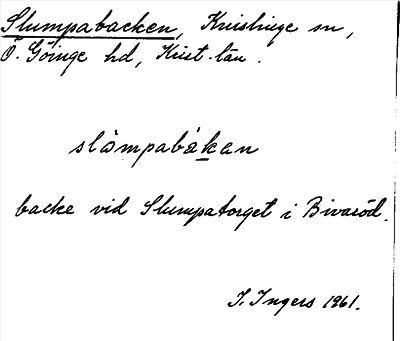 Slumpabacken, Knislinge sn,
Ö. Göinge hd, Krist. län.
slåmpabákan
backe vid Slumpatorget i Bivaröd.
I. Ingers 1961.